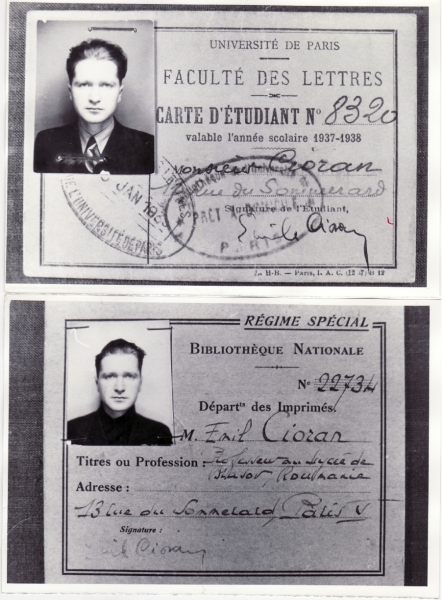 UNIVERSITÉ DE PARIS
FACULTÉ DES LETTRES
CARTE D'ÉTUDIANT Nº 8320
valable l'année scolaire 1937-1938
Monsieur Cioran
rue du Sommerard
Signature de l'Étudiant,
Cioran
JAN
DE L'UNIVERSITÉ DE PARIS
PRÊT
PARIS
RÉGIME SPÉCIAL
BIBLIOTHÈQUE NATIONALE
Nº 22734
Départᵗ des Imprimés.
M. Emil Cioran
Titres ou Profession : Professeur au Lycée de
Brasov Roumanie
Adresse :
13 rue du Sommerard, Paris V
Signature :
Emil Cioran